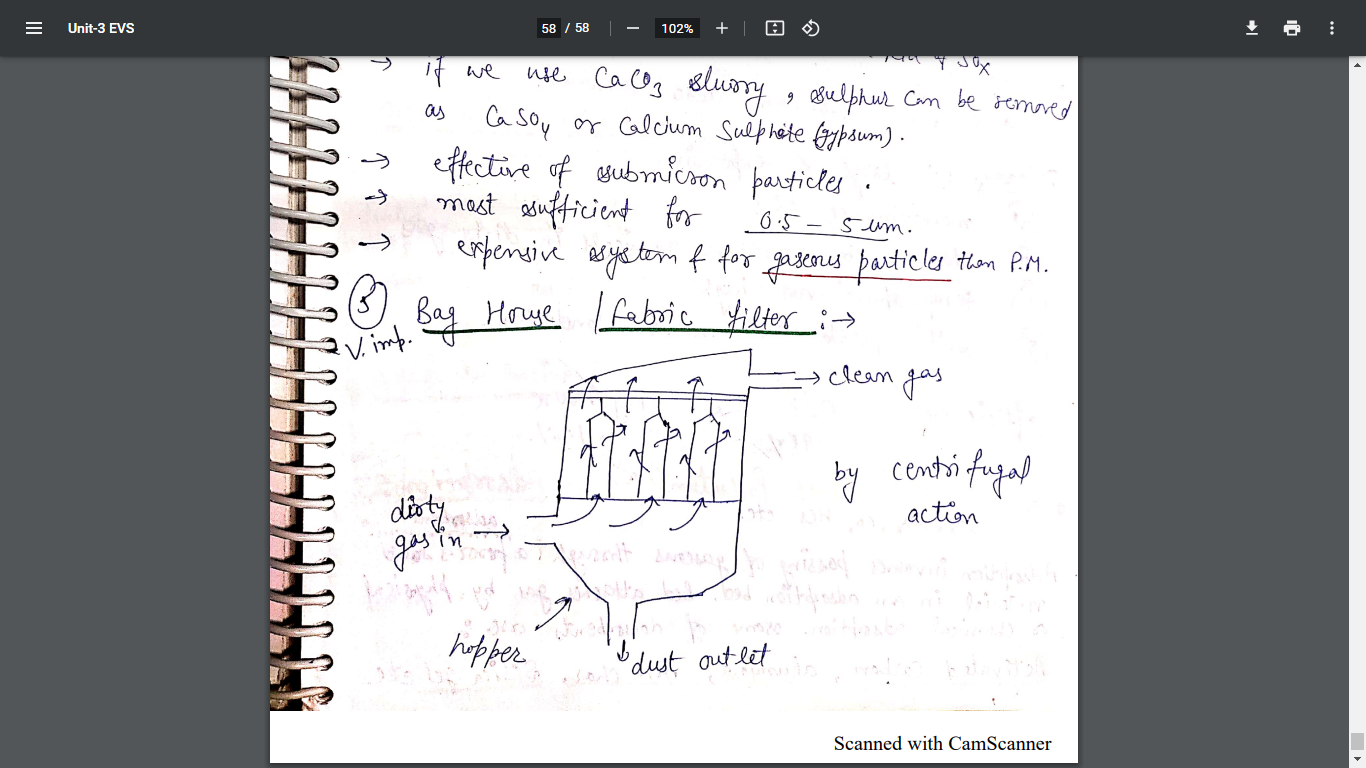 Unit-3 EVS
58 / 58
102%
SOx
→ if we use CaCO3 slurry, sulphur can be removed
as CaSO4 or Calcium Sulphate (gypsum).
→ effective of submicron particles.
→ most sufficient for 0.5 – 5 um.
→ expensive system & for gaseous particles than P.M.
5 Bag House / Fabric filter :→
V. imp.
→ clean gas
by centrifugal
action
dirty
gas in →
hopper
↓ dust outlet
Scanned with CamScanner